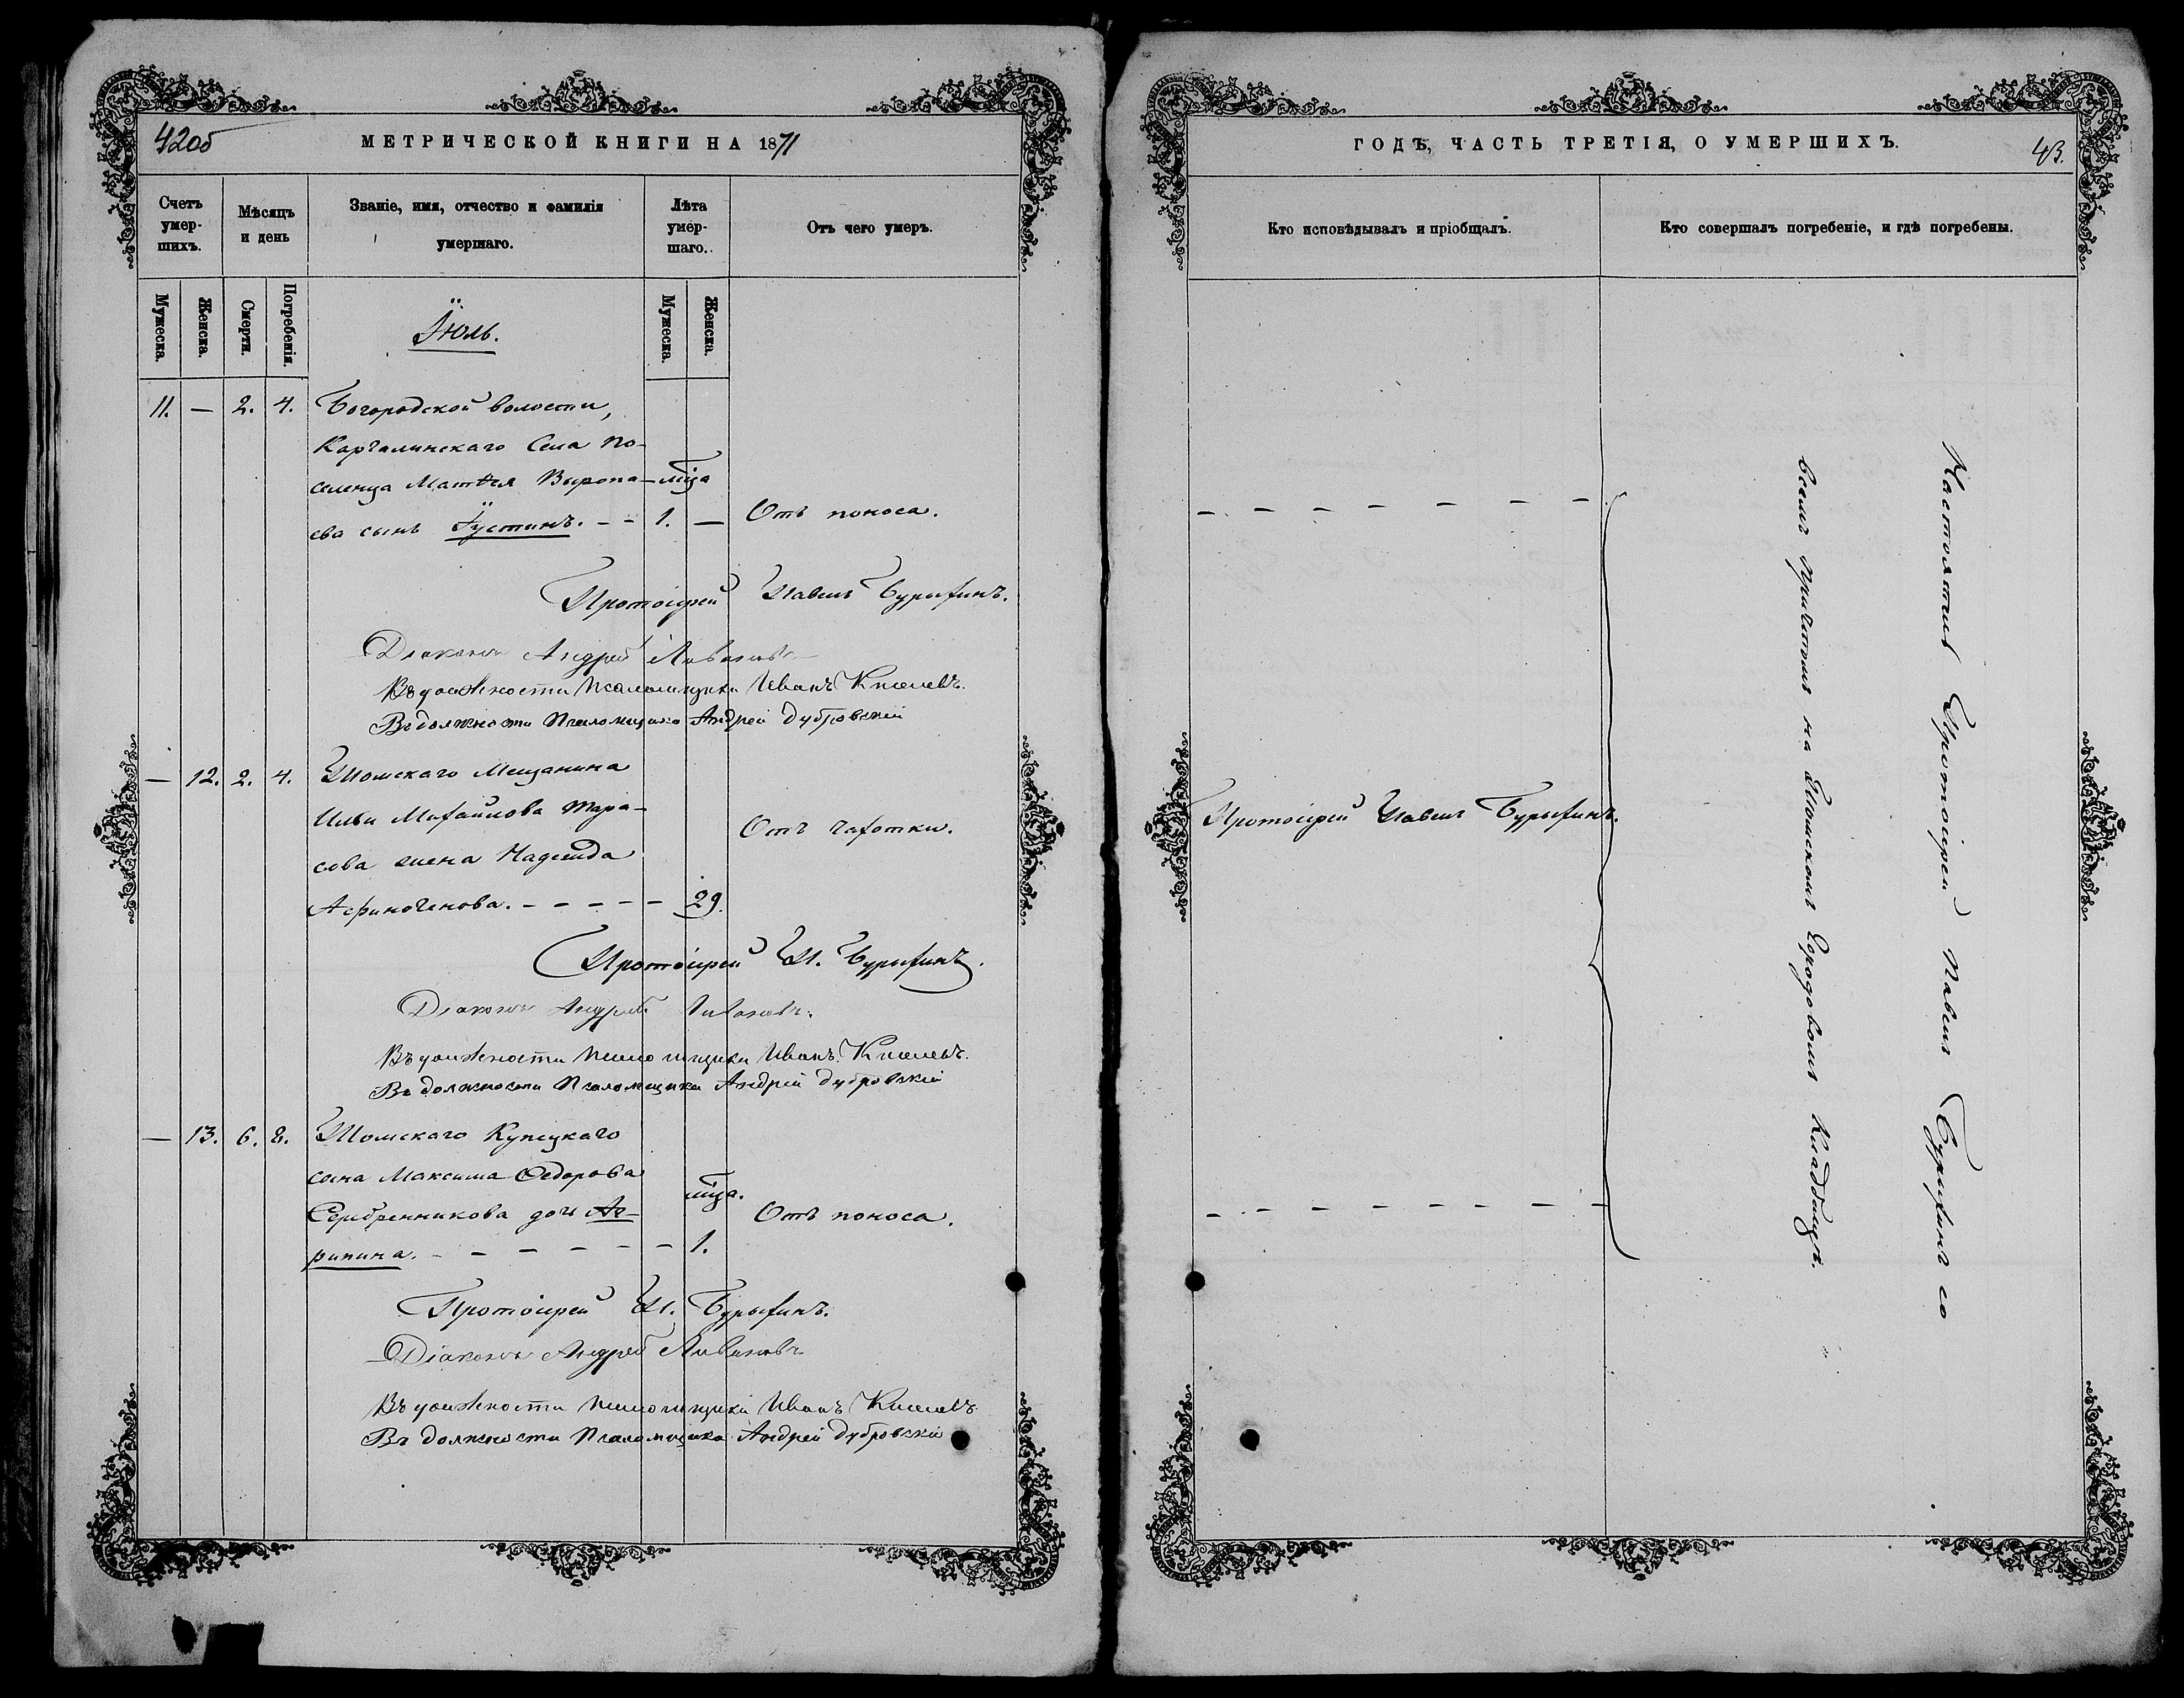 42об
МЕТРИЧЕСКОЙ КНИГИ НА 1871
Счетъ умер-шихъ.
Мѣсяцъ и день
Званіе, имя, отчество и фамилія умершаго.
Лѣта умер-шаго.
Отъ чего умеръ.
Мужеска.
Женска.
Смерти.
Погребенія.
Мужеска.
Женска.
Іюль.
11. — 2. 4. Богородской волости,
Каргалинскаго Села по-
селенца Матѳея Выропа- мца
ева сынъ Іустинъ. - - 1. — Отъ поноса.
Протоіерей Павелъ Бурыхинъ.
Діаконъ Андрей Ливановъ
Въ должности Псаломщика Иванъ Киселевъ.
Въ должности Псаломщика Андрей Дубровскій
— 12. 2. 4. Томскаго Мещанина
Ильи Михайлова Тара-
сова жена Надежда Отъ чахотки.
Афиногенова. - - - - - 29.
Протоіерей П. Бурыхинъ.
Діаконъ Андрей Ливановъ.
Въ должности псаломщика Иванъ Киселевъ.
Въ должности Псаломщика Андрей Дубровскій
— 13. 6. 8. Томскаго Купецкаго
сына Максима Ѳедорова
Серебренникова дочь Аг- мца. Отъ поноса.
рипина. - - - - - - 1.
Протоіерей П. Бурыхинъ.
Діаконъ Андрей Ливановъ
Въ должности псаломщика Иванъ Киселевъ
Въ должности Псаломщика Андрей Дубровскій
ГОДЪ, ЧАСТЬ ТРЕТІЯ, О УМЕРШИХЪ.
43.
Кто исповѣдывалъ и пріобщалъ.
Кто совершалъ погребеніе, и гдѣ погребены.
- - - - - - -
Протоіерей Павелъ Бурыхинъ.
- - - - - - - -
Настоятель Протоіерей Павелъ Бурыхинъ со
всемъ причтомъ на Томскомъ Городовомъ Кладбищѣ.